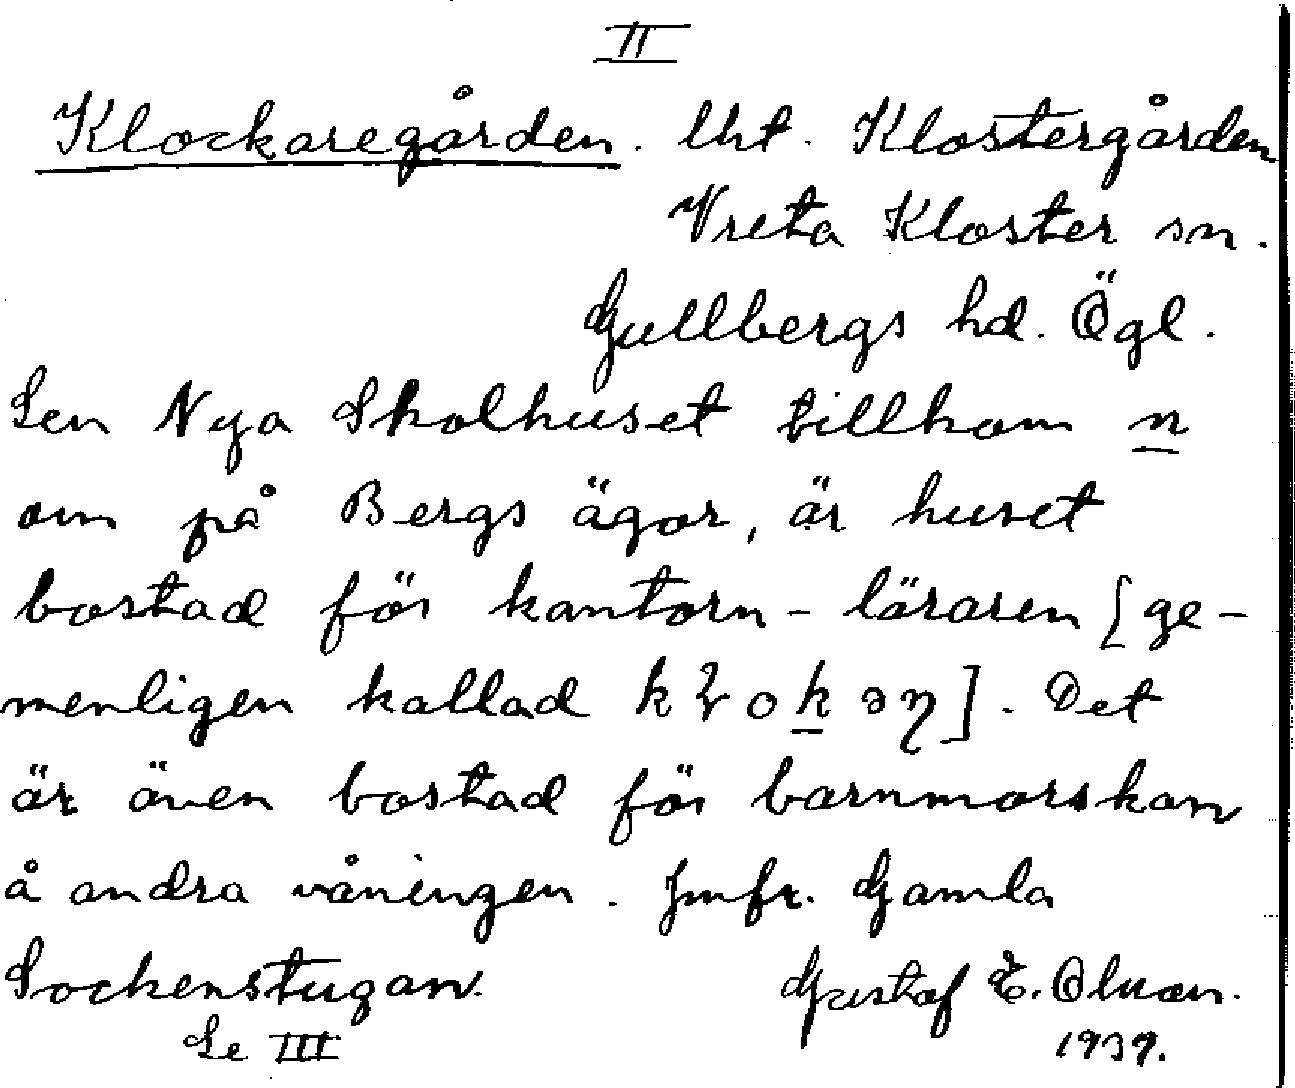 II
Klockaregården. lht. Klostergården
Vreta Kloster sn.
Gullbergs hd. Ögl.
Sen Nya Skolhuset tillkom n
om på Bergs ägor, är huset
bostad för kantorn - läraren [ge-
menligen kallad k o k ə ŋ]. Det
är även bostad för barnmorskan
å andra våningen. Jmfr. Gamla
Sockenstugan.
Gustaf E. Olson.
Se III
1939.